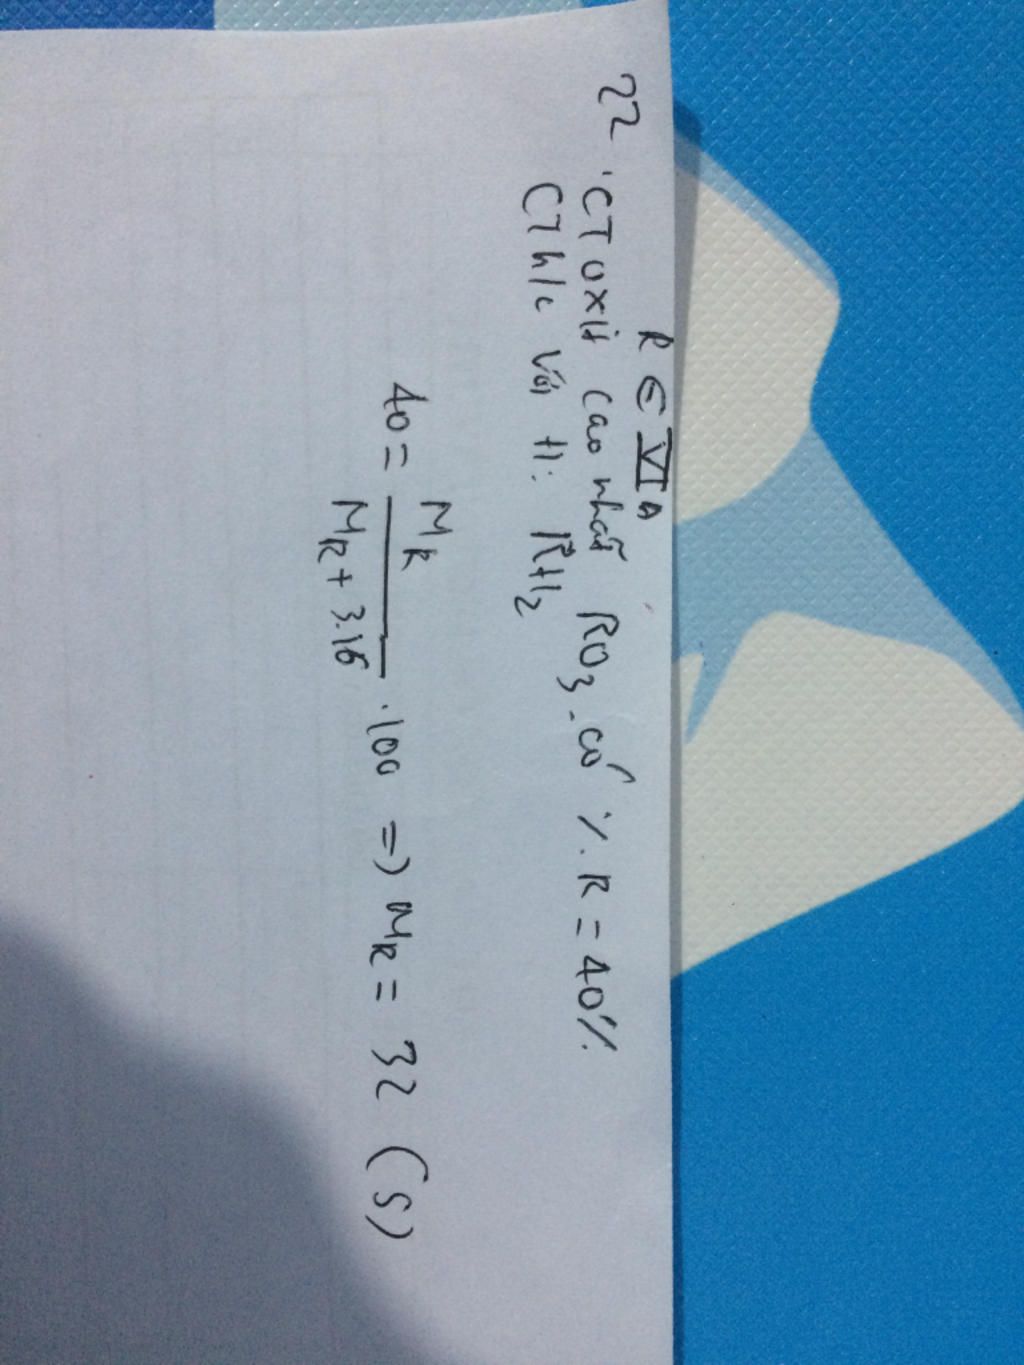 22
R ∈ VIA
CT oxit cao nhất RO3 có %R = 40%
CT h/c với H: RH2
40 = MR / MR + 3.16 . 100 => MR = 32 (S)